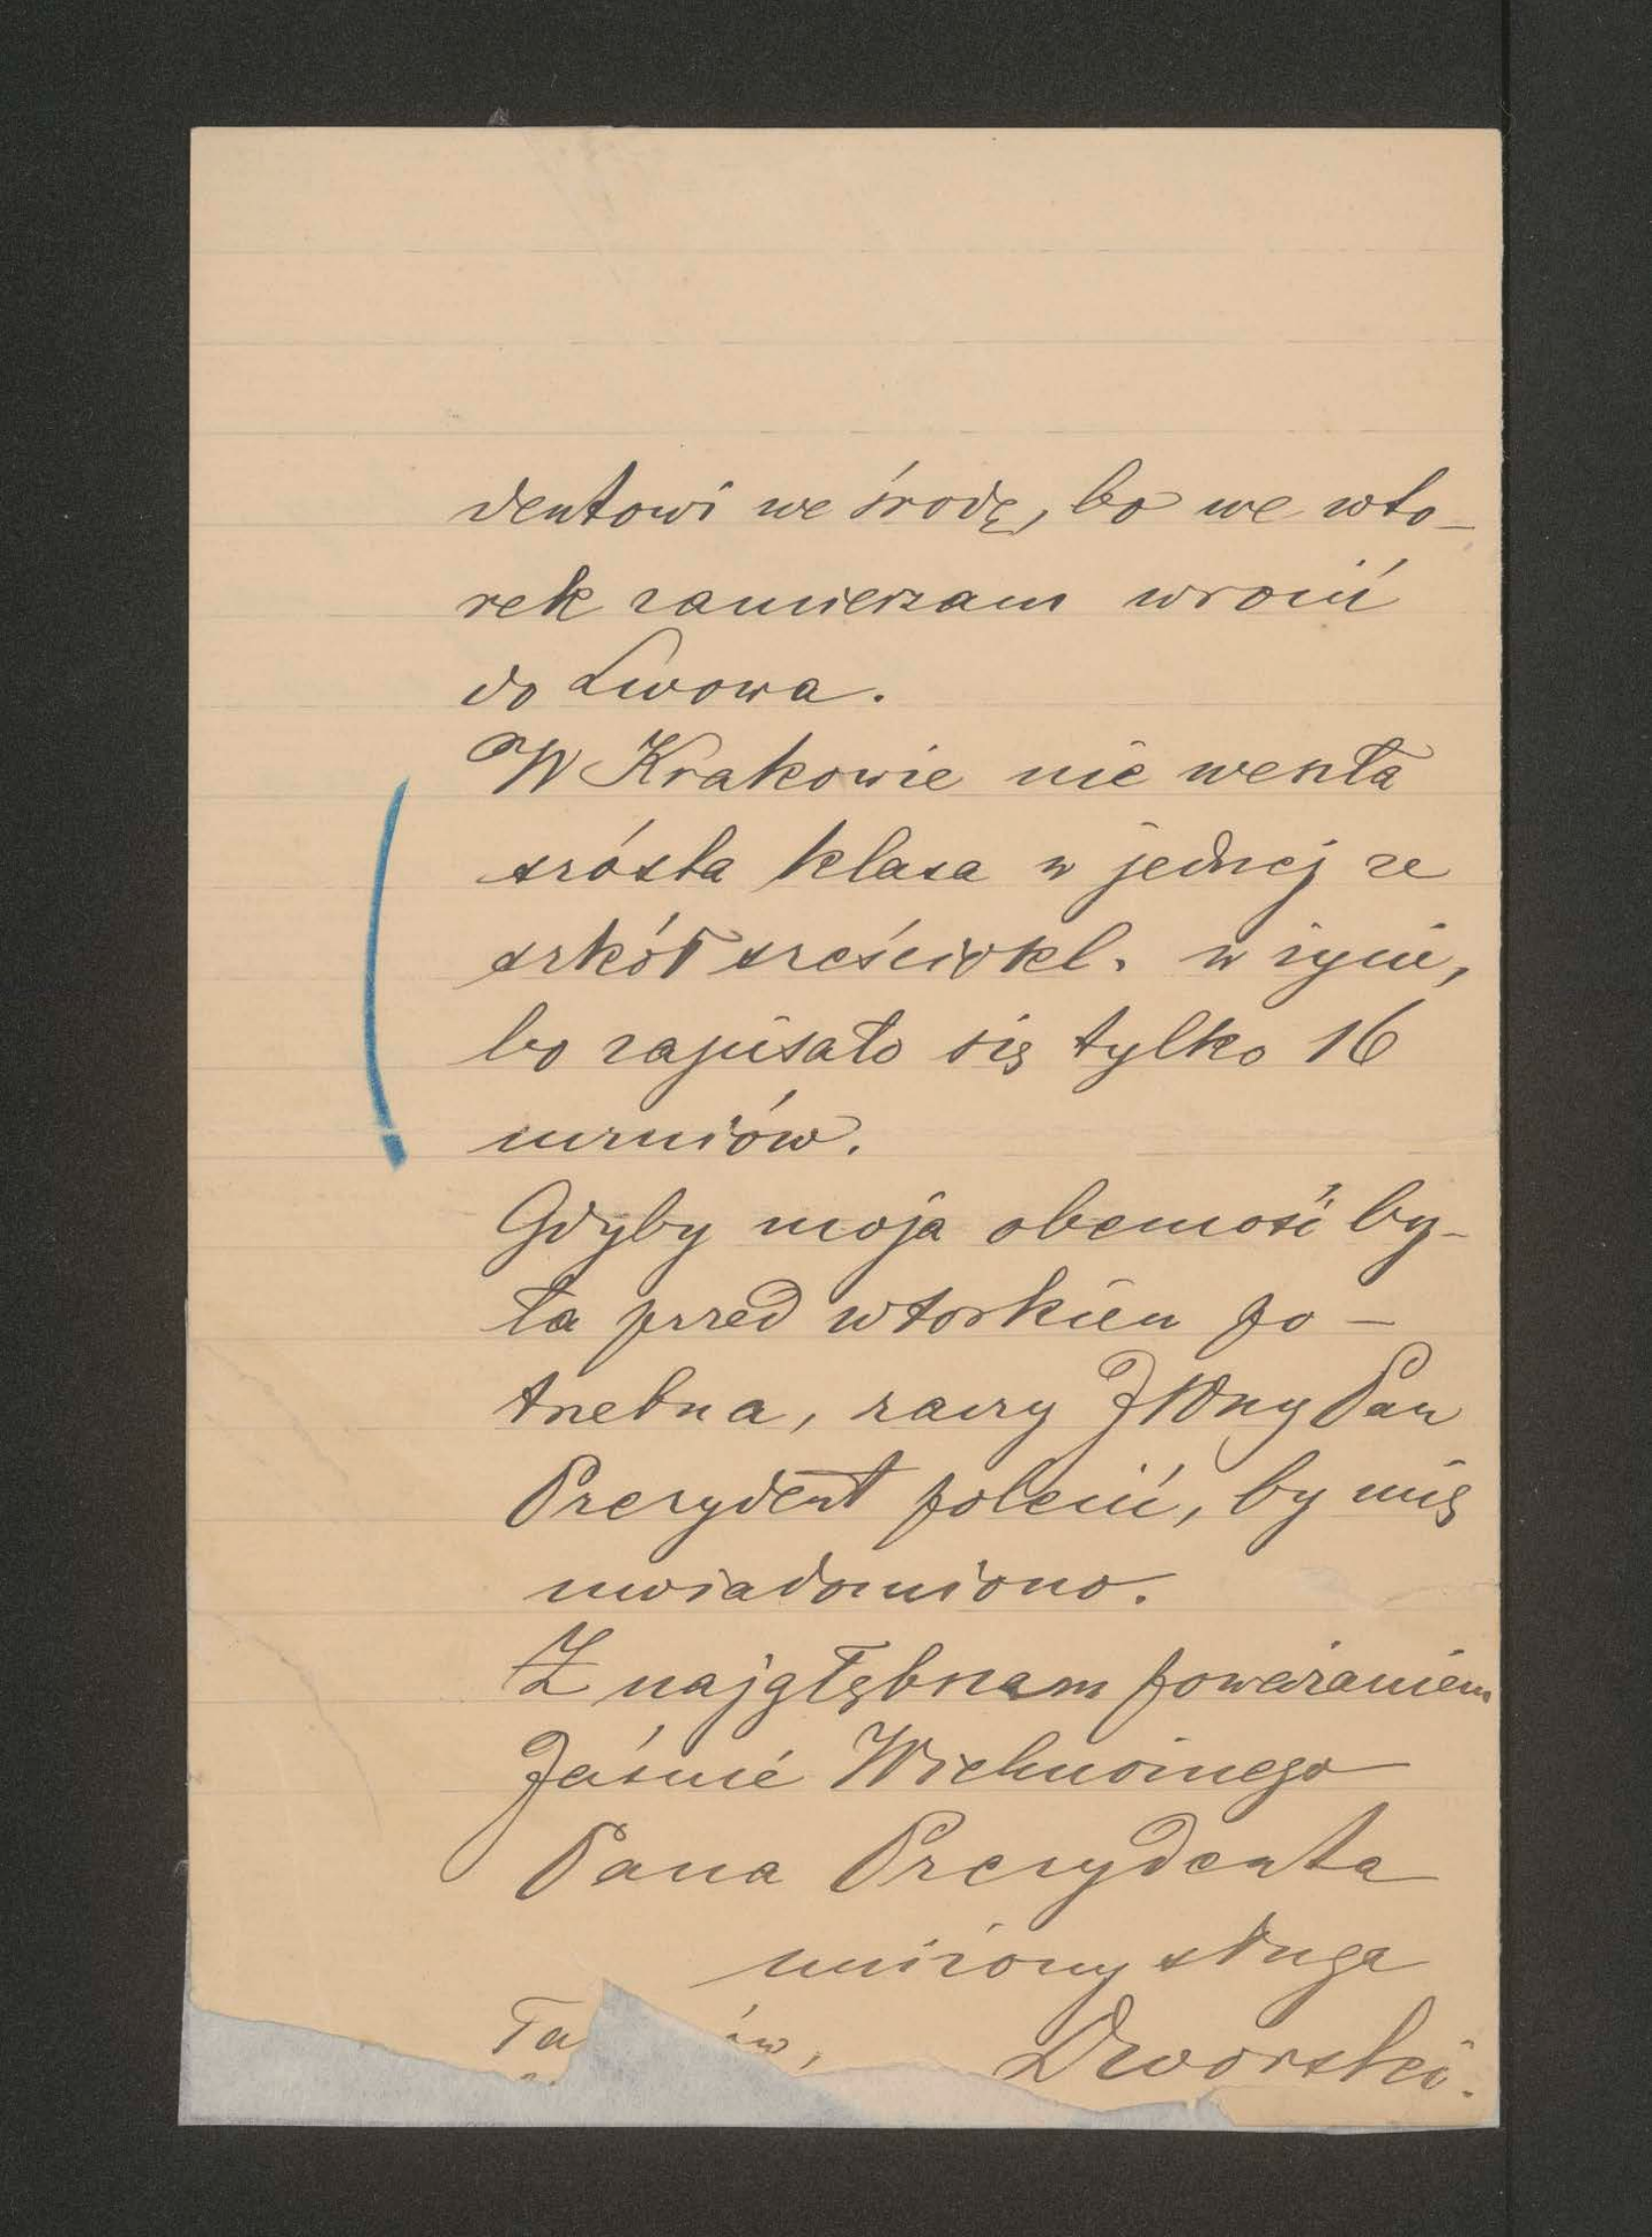 dentowi we środę, bo we wto-
rek zamierzam wrócić
do Lwowa.
W Krakowie nie weszła
szósta klasa w jednej ze
szkół sześciokl. w życie,
bo zapisało się tylko 16
uczniów.
Gdyby moja obecność by-
ła przed wtorkiem po-
trzebna, raczy JWny Pan
Prezydent polecić, by mię
uwiadomiono.
Z najgłębszem poważaniem
Jaśnie Wielmożnego
Pana Prezydenta
uniżony sługa
Dworski.